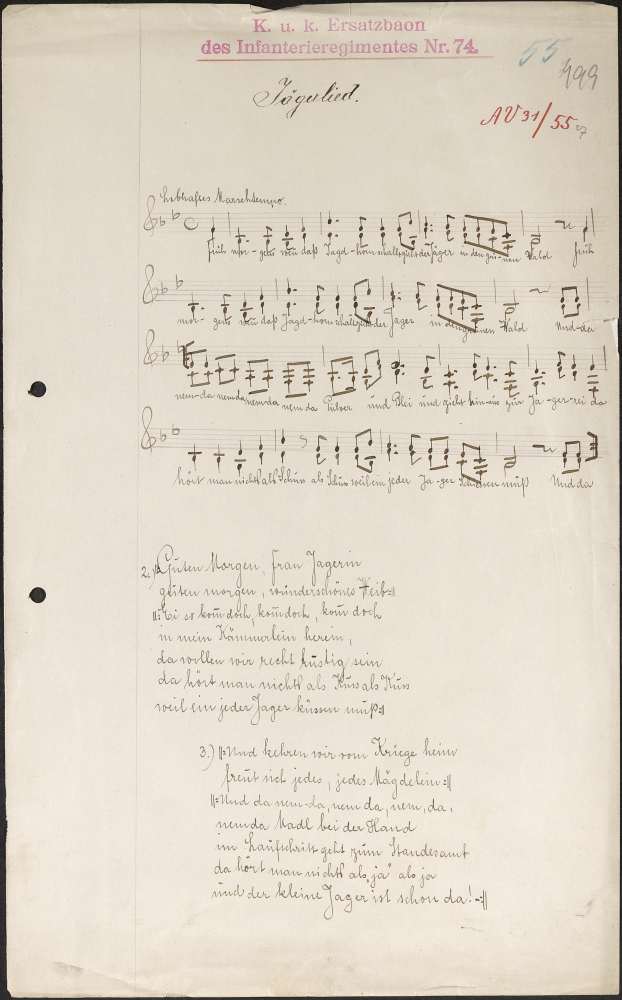 K. u. k. Ersatzbaon
des Infanterieregimentes Nr. 74.
55
499
Jägerlied.
AV 31/55
Lebhaftes Marschtempo.
früh mor - gens wen̄ daß Jagd-horn schallt der Jäger in den grü-nen Wald früh
mor- gens wen̄ daß Jagd-horn schallt der Jager in den grünen Wald Und-da
nem-da nemda nem-da nem da Pulver und Blei und zieht hin-aus zur Ja-ger-rei da
hört man nichts als Schuss als Schuss weil ein jeder Ja-ger schiessen muß Und da
2.) Guten Morgen, Frau Jagerin
guten morgen, wunderschönes Weib:||
||: Ei so kom̄ doch, kom̄ doch, kom̄ doch
in mein Kämmerlein herein,
da wollen wir recht lustig sein
da hört man nichts als Kuss als Kuss
weil ein jeder Jager küssen muß:||
3.) ||: Und kehren wir vom Kriege heim
freut sich jedes, jedes Mägdelein:||
||: Und da nem-da, nem da, nem, da,
nemda Madl bei der Hand
im Laufschritt geht zum Standesamt
da hört man nichts als „ja" als ja
und der kleine Jager ist schon da! :||